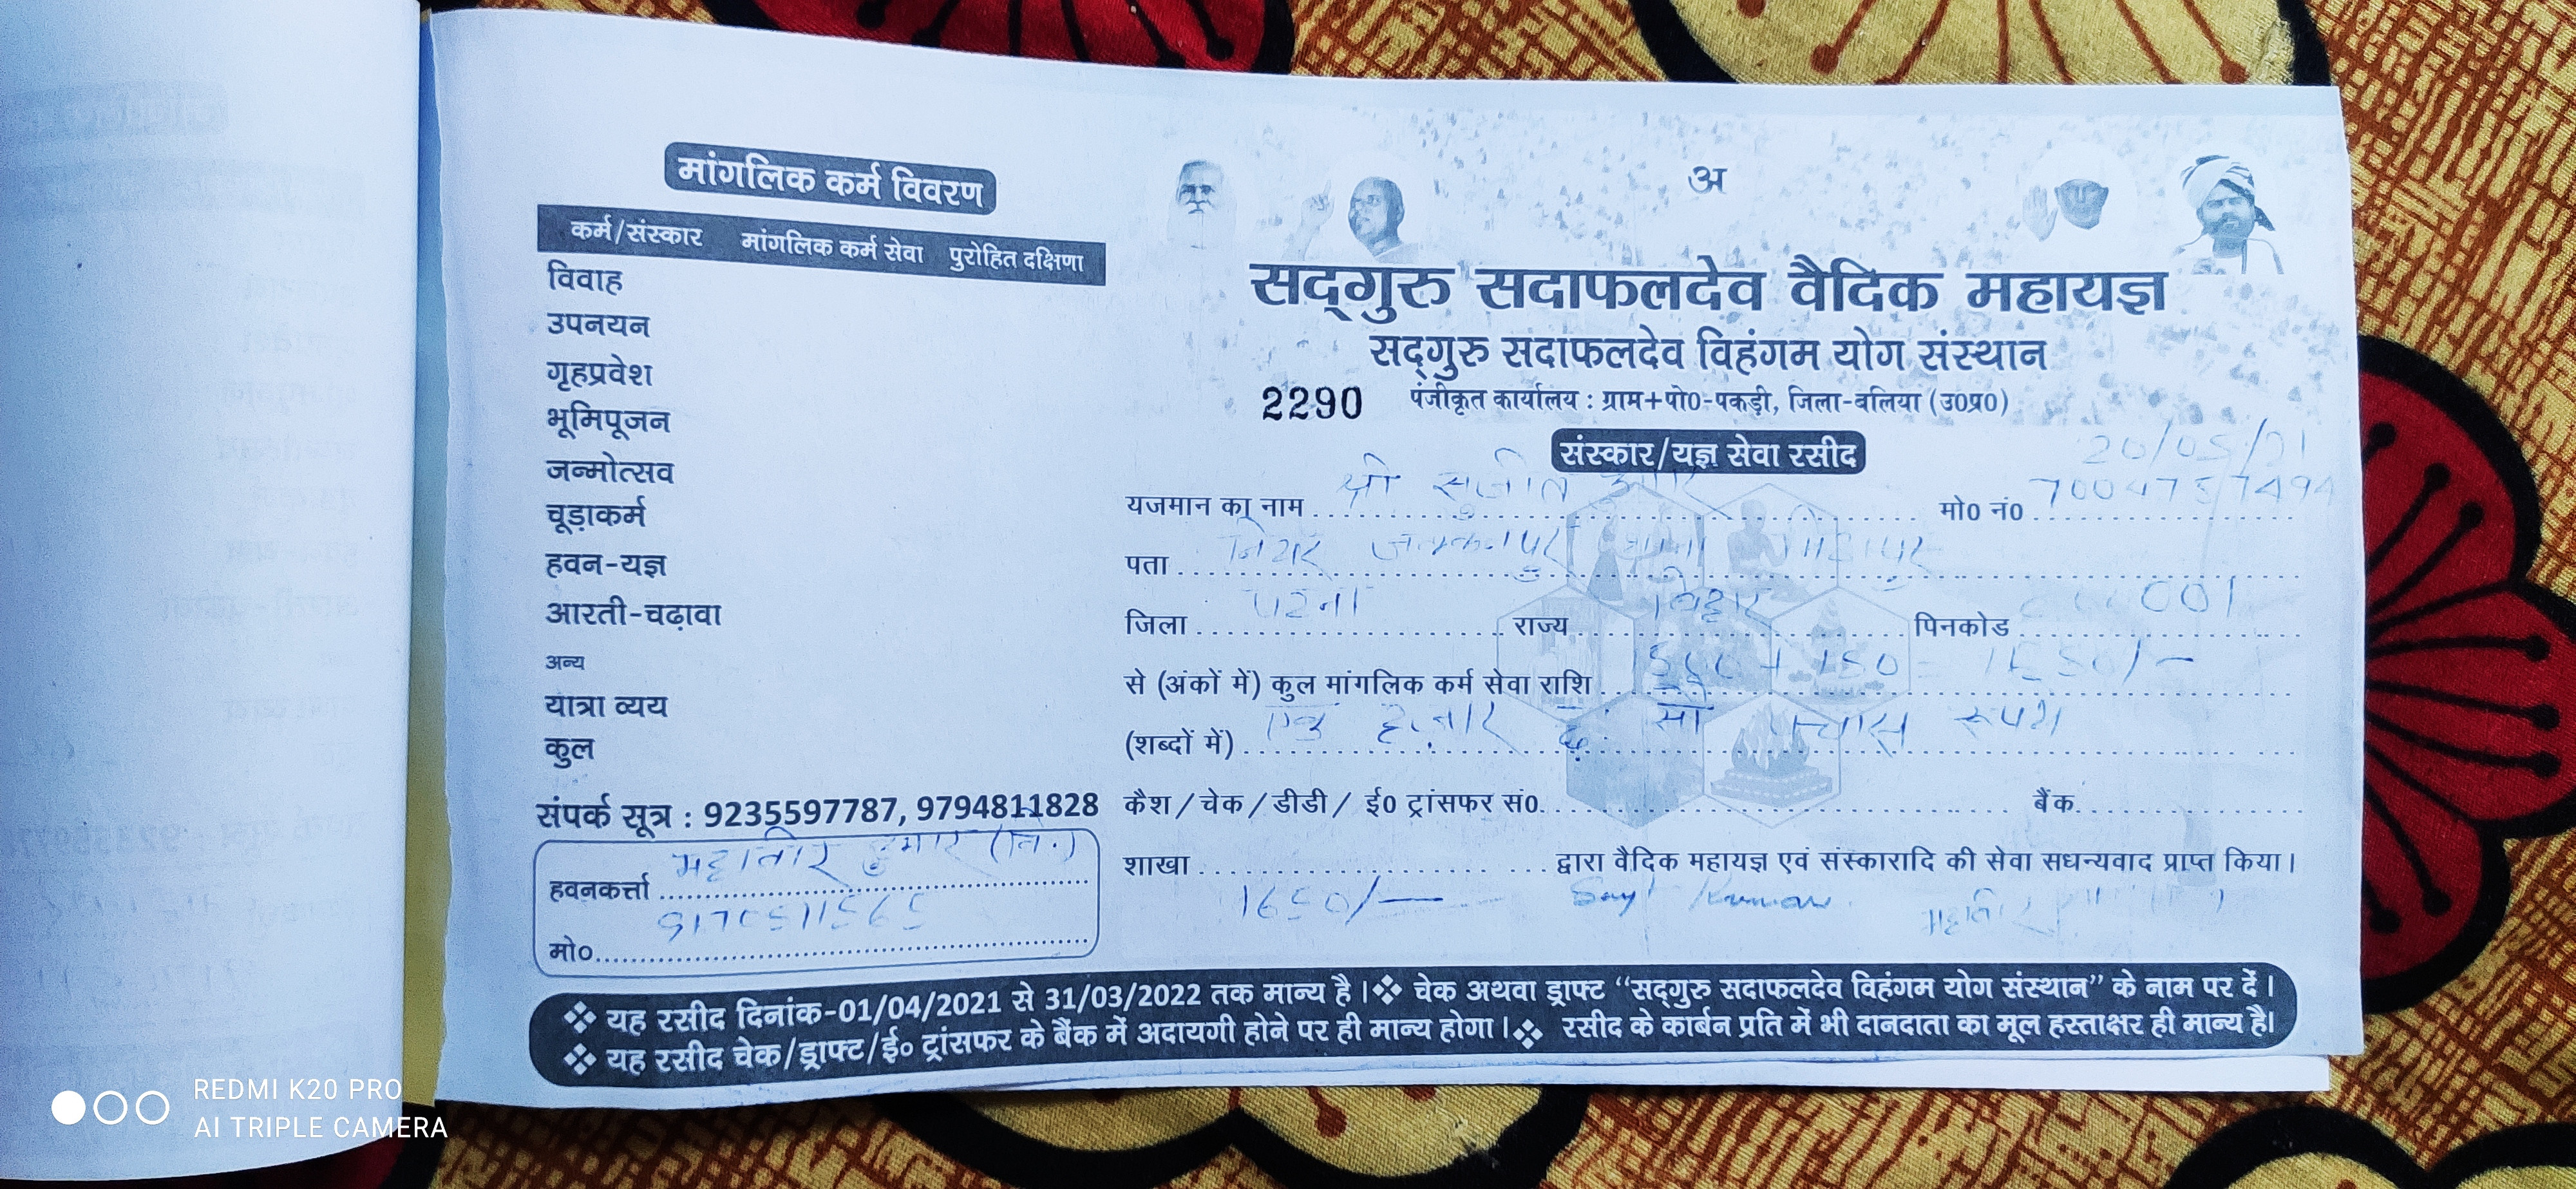 मांगलिक कर्म विवरण
कर्म/संस्कार मांगलिक कर्म सेवा पुरोहित दक्षिणा
विवाह
उपनयन
गृहप्रवेश
भूमिपूजन
जन्मोत्सव
चूड़ाकर्म
हवन-यज्ञ
आरती-चढ़ावा
अन्य
यात्रा व्यय
कुल
संपर्क सूत्र : 9235597787, 9794811828
हवनकर्त्ता कुमार
मो०
अ
सद्गुरु सदाफलदेव वैदिक महायज्ञ
सद्गुरु सदाफलदेव विहंगम योग संस्थान
2290 पंजीकृत कार्यालय : ग्राम+पो0-पकड़ी, जिला-बलिया (उ0प्र0)
संस्कार/यज्ञ सेवा रसीद 20/05/21
यजमान का नाम श्री सुजीत कुमार मो0 नं0
पता
जिला पटना राज्य बिहार पिनकोड
से (अंकों में) कुल मांगलिक कर्म सेवा राशि 1500 + 150 = 1650/-
(शब्दों में) एक हजार छः सौ पचास रूपये
कैश / चेक / डीडी / ई0 ट्रांसफर सं0. बैंक
शाखा द्वारा वैदिक महायज्ञ एवं संस्कारादि की सेवा सधन्यवाद प्राप्त किया।
1650/- Kumar
❖ यह रसीद दिनांक-01/04/2021 से 31/03/2022 तक मान्य है। ❖ चेक अथवा ड्राफ्ट “सद्गुरु सदाफलदेव विहंगम योग संस्थान” के नाम पर दें।
❖ यह रसीद चेक/ड्राफ्ट/ई० ट्रांसफर के बैंक में अदायगी होने पर ही मान्य होगा। ❖ रसीद के कार्बन प्रति में भी दानदाता का मूल हस्ताक्षर ही मान्य है।
REDMI K20 PRO
AI TRIPLE CAMERA